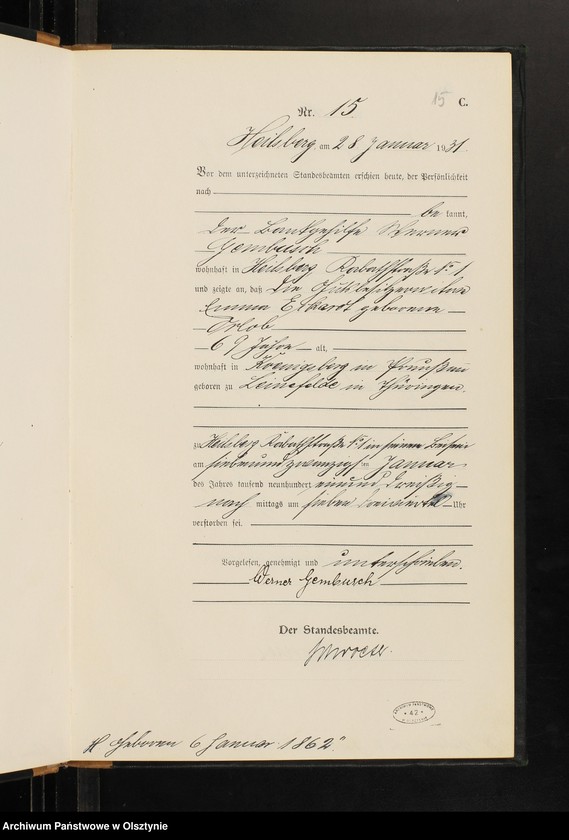 15 C.
Nr. 15.
Heilsberg, am 28 Januar 1931.
Vor dem unterzeichneten Standesbeamten erschien heute, der Persönlichkeit
nach
be kannt,
der Bankgehilfe Werner
Gembusch
wohnhaft in Heilsberg
und zeigte an, daß die
Emma geborene
Orlob
69 Jahre alt,
wohnhaft in Koenigsberg in Preußen
geboren zu Leinefelde in Thüringen.
zu Heilsberg in seinem Beisein
am siebenundzwanzigsten Januar
des Jahres tausend neunhundert einund dreißig
nach mittags um sieben dreiviertel Uhr
verstorben sei.
Vorgelesen, genehmigt und unterschrieben.
Werner Gembusch
Der Standesbeamte.
H geboren 6 Januar 1862"
42
Archiwum Państwowe w Olsztynie